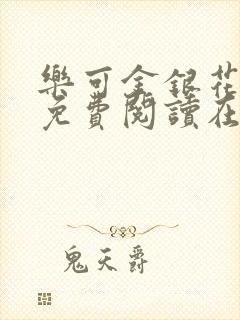 樂可金銀花
免費閱讀在
鬼天爵